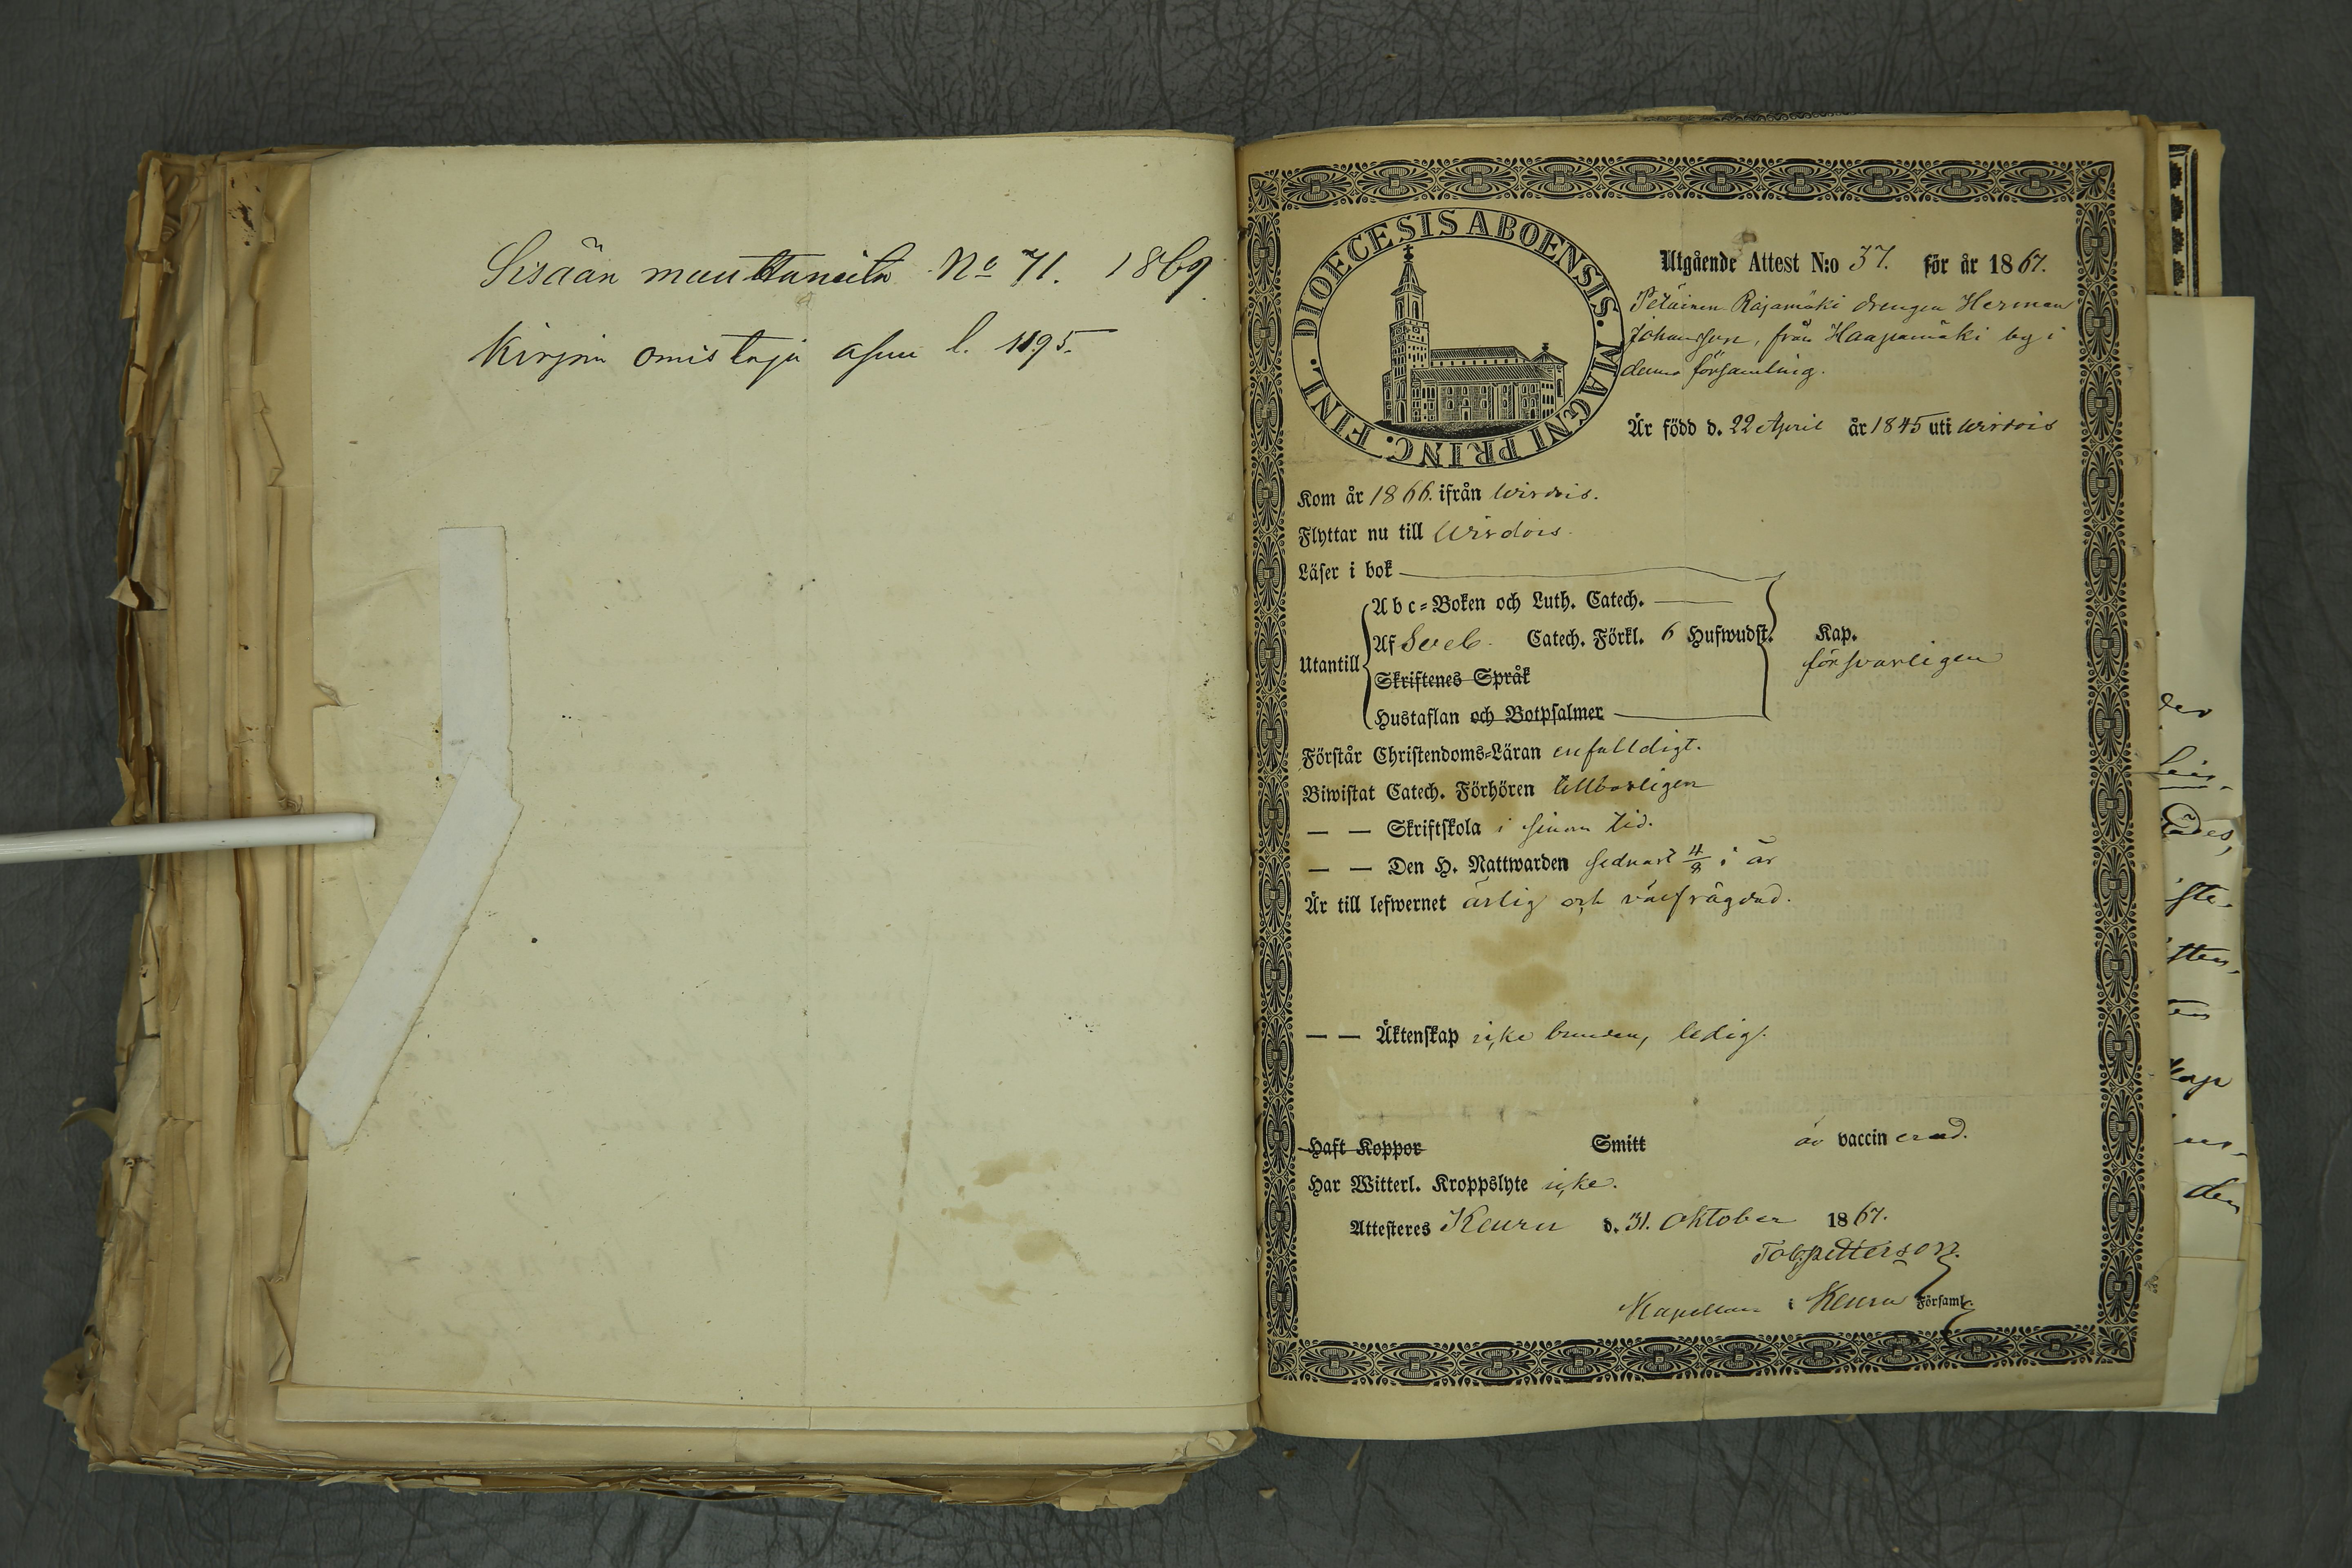 Sisään muuttaneita No 71. 1869.
Kirjan omistaja asuu l. 1195.
DIOECESIS ABOENSIS. MAGNI PRINC. FINL.
Utgående Attest N:o 37. för år 1867.
Petäinen Rajamäki drengen Herman
Johansson, från Haapamäki by i
denna församling.
Är född d. 22 April år 1845 uti Wirdois
Kom år 1866. ifrån Wirdois.
Flyttar nu till Wirdois.
Läser i bok
Abc-Boken och Luth. Catech.
Af Sveb. Catech. Förkl. 6 Hufwudst. Kap.
Utantill
försvarligen
Skriftenes Språk
Hustaflan och Botpsalmer
Förstår Christendoms-Läran enfalldigt.
Biwistat Catech. Förhören tillbörligen
— — Skriftskola i sinom tid.
— — Den H. Nattwarden sednast 4/8 i år
Är till lefwernet ärlig och välfrägdad.
— — Äktenskap icke bunden, ledig.
Haft Koppor Smitt är vaccinerad.
Har Witterl. Kroppslyte icke.
Attesteres Keuru d. 31. Oktober 1867.
Tob. Petterson.
Kapellan i Keuru Församl.
der
ste-
den